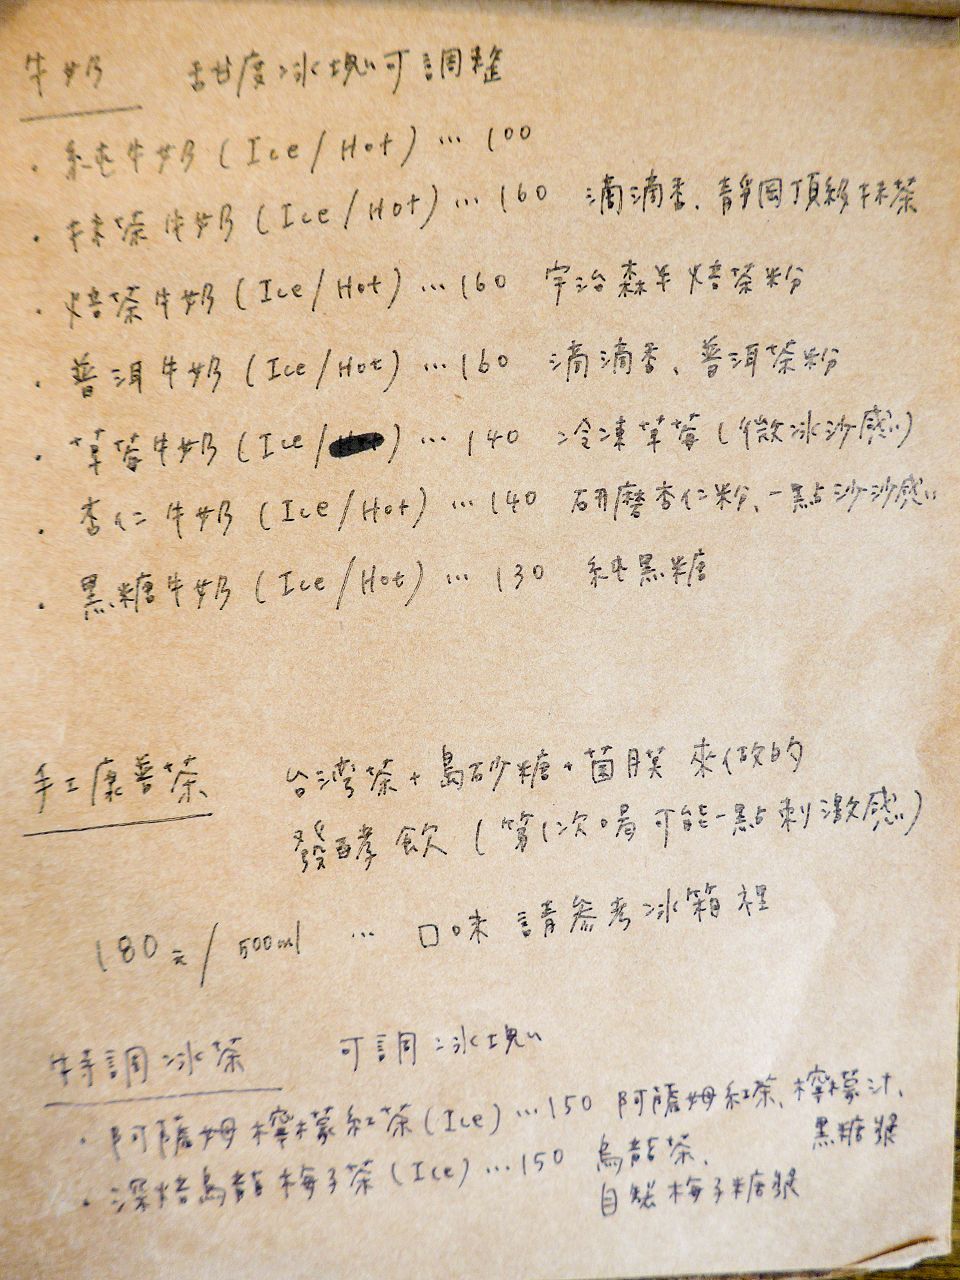 牛奶 甜度冰塊可調整
・純牛奶(Ice/Hot)…100
・抹茶牛奶(Ice/Hot)…160 滴滴香、靜岡頂級抹茶
・焙茶牛奶(Ice/Hot)…160 宇治森半焙茶粉
・普洱牛奶(Ice/Hot)…160 滴滴香、普洱茶粉
・草莓牛奶(Ice/)…140 冷凍草莓(微冰沙感)
・杏仁牛奶(Ice/Hot)…140 研磨杏仁粉、一點沙沙感
・黑糖牛奶(Ice/Hot)…130 純黑糖
手工康普茶 台灣茶+島砂糖+菌膜來做的
發酵飲(第1次喝可能一點刺激感)
180元/500ml … 口味請參考冰箱裡
特調冰茶 可調冰塊
・阿薩姆檸檬紅茶(Ice)…150 阿薩姆紅茶、檸檬汁、
黑糖漿
・深焙烏龍梅子茶(Ice)…150 烏龍茶、
自然梅子糖漿